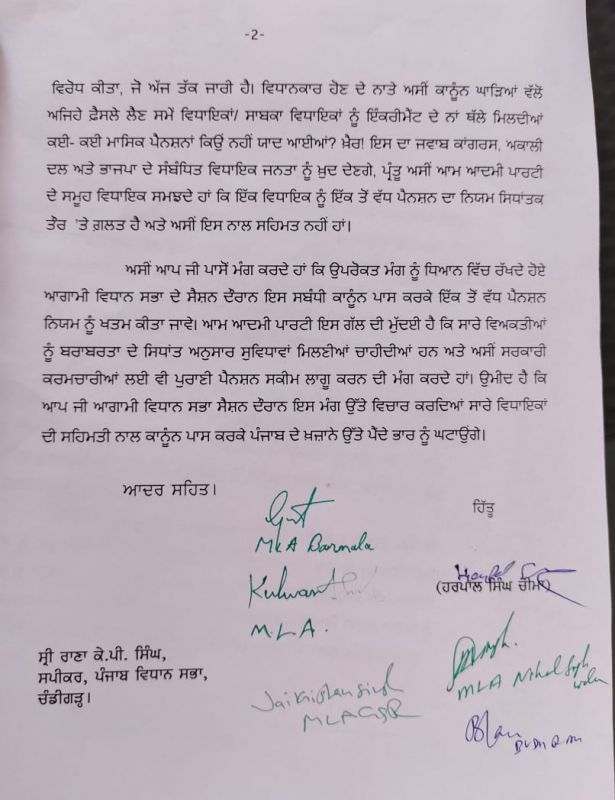 -2-
ਵਿਰੋਧ ਕੀਤਾ, ਜੋ ਅੱਜ ਤੱਕ ਜਾਰੀ ਹੈ। ਵਿਧਾਨਕਾਰ ਹੋਣ ਦੇ ਨਾਤੇ ਅਸੀਂ ਕਾਨੂੰਨ ਘਾੜਿਆਂ ਵੱਲੋਂ
ਅਜਿਹੇ ਫ਼ੈਸਲੇ ਲੈਣ ਸਮੇਂ ਵਿਧਾਇਕਾਂ/ ਸਾਬਕਾ ਵਿਧਾਇਕਾਂ ਨੂੰ ਇੰਕਰੀਮੈਂਟ ਦੇ ਨਾਂ ਥੱਲੇ ਮਿਲਦੀਆਂ
ਕਈ- ਕਈ ਮਾਸਿਕ ਪੈਨਸ਼ਨਾਂ ਕਿਉਂ ਨਹੀਂ ਯਾਦ ਆਈਆਂ? ਖ਼ੈਰ! ਇਸ ਦਾ ਜਵਾਬ ਕਾਂਗਰਸ, ਅਕਾਲੀ
ਦਲ ਅਤੇ ਭਾਜਪਾ ਦੇ ਸੰਬੰਧਿਤ ਵਿਧਾਇਕ ਜਨਤਾ ਨੂੰ ਖ਼ੁਦ ਦੇਣਗੇ, ਪ੍ਰੰਤੂ ਅਸੀਂ ਆਮ ਆਦਮੀ ਪਾਰਟੀ
ਦੇ ਸਮੂਹ ਵਿਧਾਇਕ ਸਮਝਦੇ ਹਾਂ ਕਿ ਇੱਕ ਵਿਧਾਇਕ ਨੂੰ ਇੱਕ ਤੋਂ ਵੱਧ ਪੈਨਸ਼ਨ ਦਾ ਨਿਯਮ ਸਿਧਾਂਤਕ
ਤੌਰ 'ਤੇ ਗ਼ਲਤ ਹੈ ਅਤੇ ਅਸੀਂ ਇਸ ਨਾਲ ਸਹਿਮਤ ਨਹੀਂ ਹਾਂ।
ਅਸੀਂ ਆਪ ਜੀ ਪਾਸੋਂ ਮੰਗ ਕਰਦੇ ਹਾਂ ਕਿ ਉਪਰੋਕਤ ਮੰਗ ਨੂੰ ਧਿਆਨ ਵਿੱਚ ਰੱਖਦੇ ਹੋਏ
ਆਗਾਮੀ ਵਿਧਾਨ ਸਭਾ ਦੇ ਸੈਸ਼ਨ ਦੌਰਾਨ ਇਸ ਸਬੰਧੀ ਕਾਨੂੰਨ ਪਾਸ ਕਰਕੇ ਇੱਕ ਤੋਂ ਵੱਧ ਪੈਨਸ਼ਨ
ਨਿਯਮ ਨੂੰ ਖ਼ਤਮ ਕੀਤਾ ਜਾਵੇ। ਆਮ ਆਦਮੀ ਪਾਰਟੀ ਇਸ ਗੱਲ ਦੀ ਮੁੱਦਈ ਹੈ ਕਿ ਸਾਰੇ ਵਿਅਕਤੀਆਂ
ਨੂੰ ਬਰਾਬਰਤਾ ਦੇ ਸਿਧਾਂਤ ਅਨੁਸਾਰ ਸੁਵਿਧਾਵਾਂ ਮਿਲਣੀਆਂ ਚਾਹੀਦੀਆਂ ਹਨ ਅਤੇ ਅਸੀਂ ਸਰਕਾਰੀ
ਕਰਮਚਾਰੀਆਂ ਲਈ ਵੀ ਪੁਰਾਣੀ ਪੈਨਸ਼ਨ ਸਕੀਮ ਲਾਗੂ ਕਰਨ ਦੀ ਮੰਗ ਕਰਦੇ ਹਾਂ। ਉਮੀਦ ਹੈ ਕਿ
ਆਪ ਜੀ ਆਗਾਮੀ ਵਿਧਾਨ ਸਭਾ ਸੈਸ਼ਨ ਦੌਰਾਨ ਇਸ ਮੰਗ ਉੱਤੇ ਵਿਚਾਰ ਕਰਦਿਆਂ ਸਾਰੇ ਵਿਧਾਇਕਾਂ
ਦੀ ਸਹਿਮਤੀ ਨਾਲ ਕਾਨੂੰਨ ਪਾਸ ਕਰਕੇ ਪੰਜਾਬ ਦੇ ਖ਼ਜ਼ਾਨੇ ਉੱਤੇ ਪੈਂਦੇ ਭਾਰ ਨੂੰ ਘਟਾਉਂਗੇ।
ਆਦਰ ਸਹਿਤ।
ਹਿੱਤੂ
MLA Barnala
Kulwant
(ਹਰਪਾਲ ਸਿੰਘ ਚੀਮਾ)
M.L.A.
ਸ੍ਰੀ ਰਾਣਾ ਕੇ.ਪੀ. ਸਿੰਘ,
ਸਪੀਕਰ, ਪੰਜਾਬ ਵਿਧਾਨ ਸਭਾ,
ਚੰਡੀਗੜ੍ਹ।
MLA Nihal Singh
wala
Jai Kishan Singh
MLA